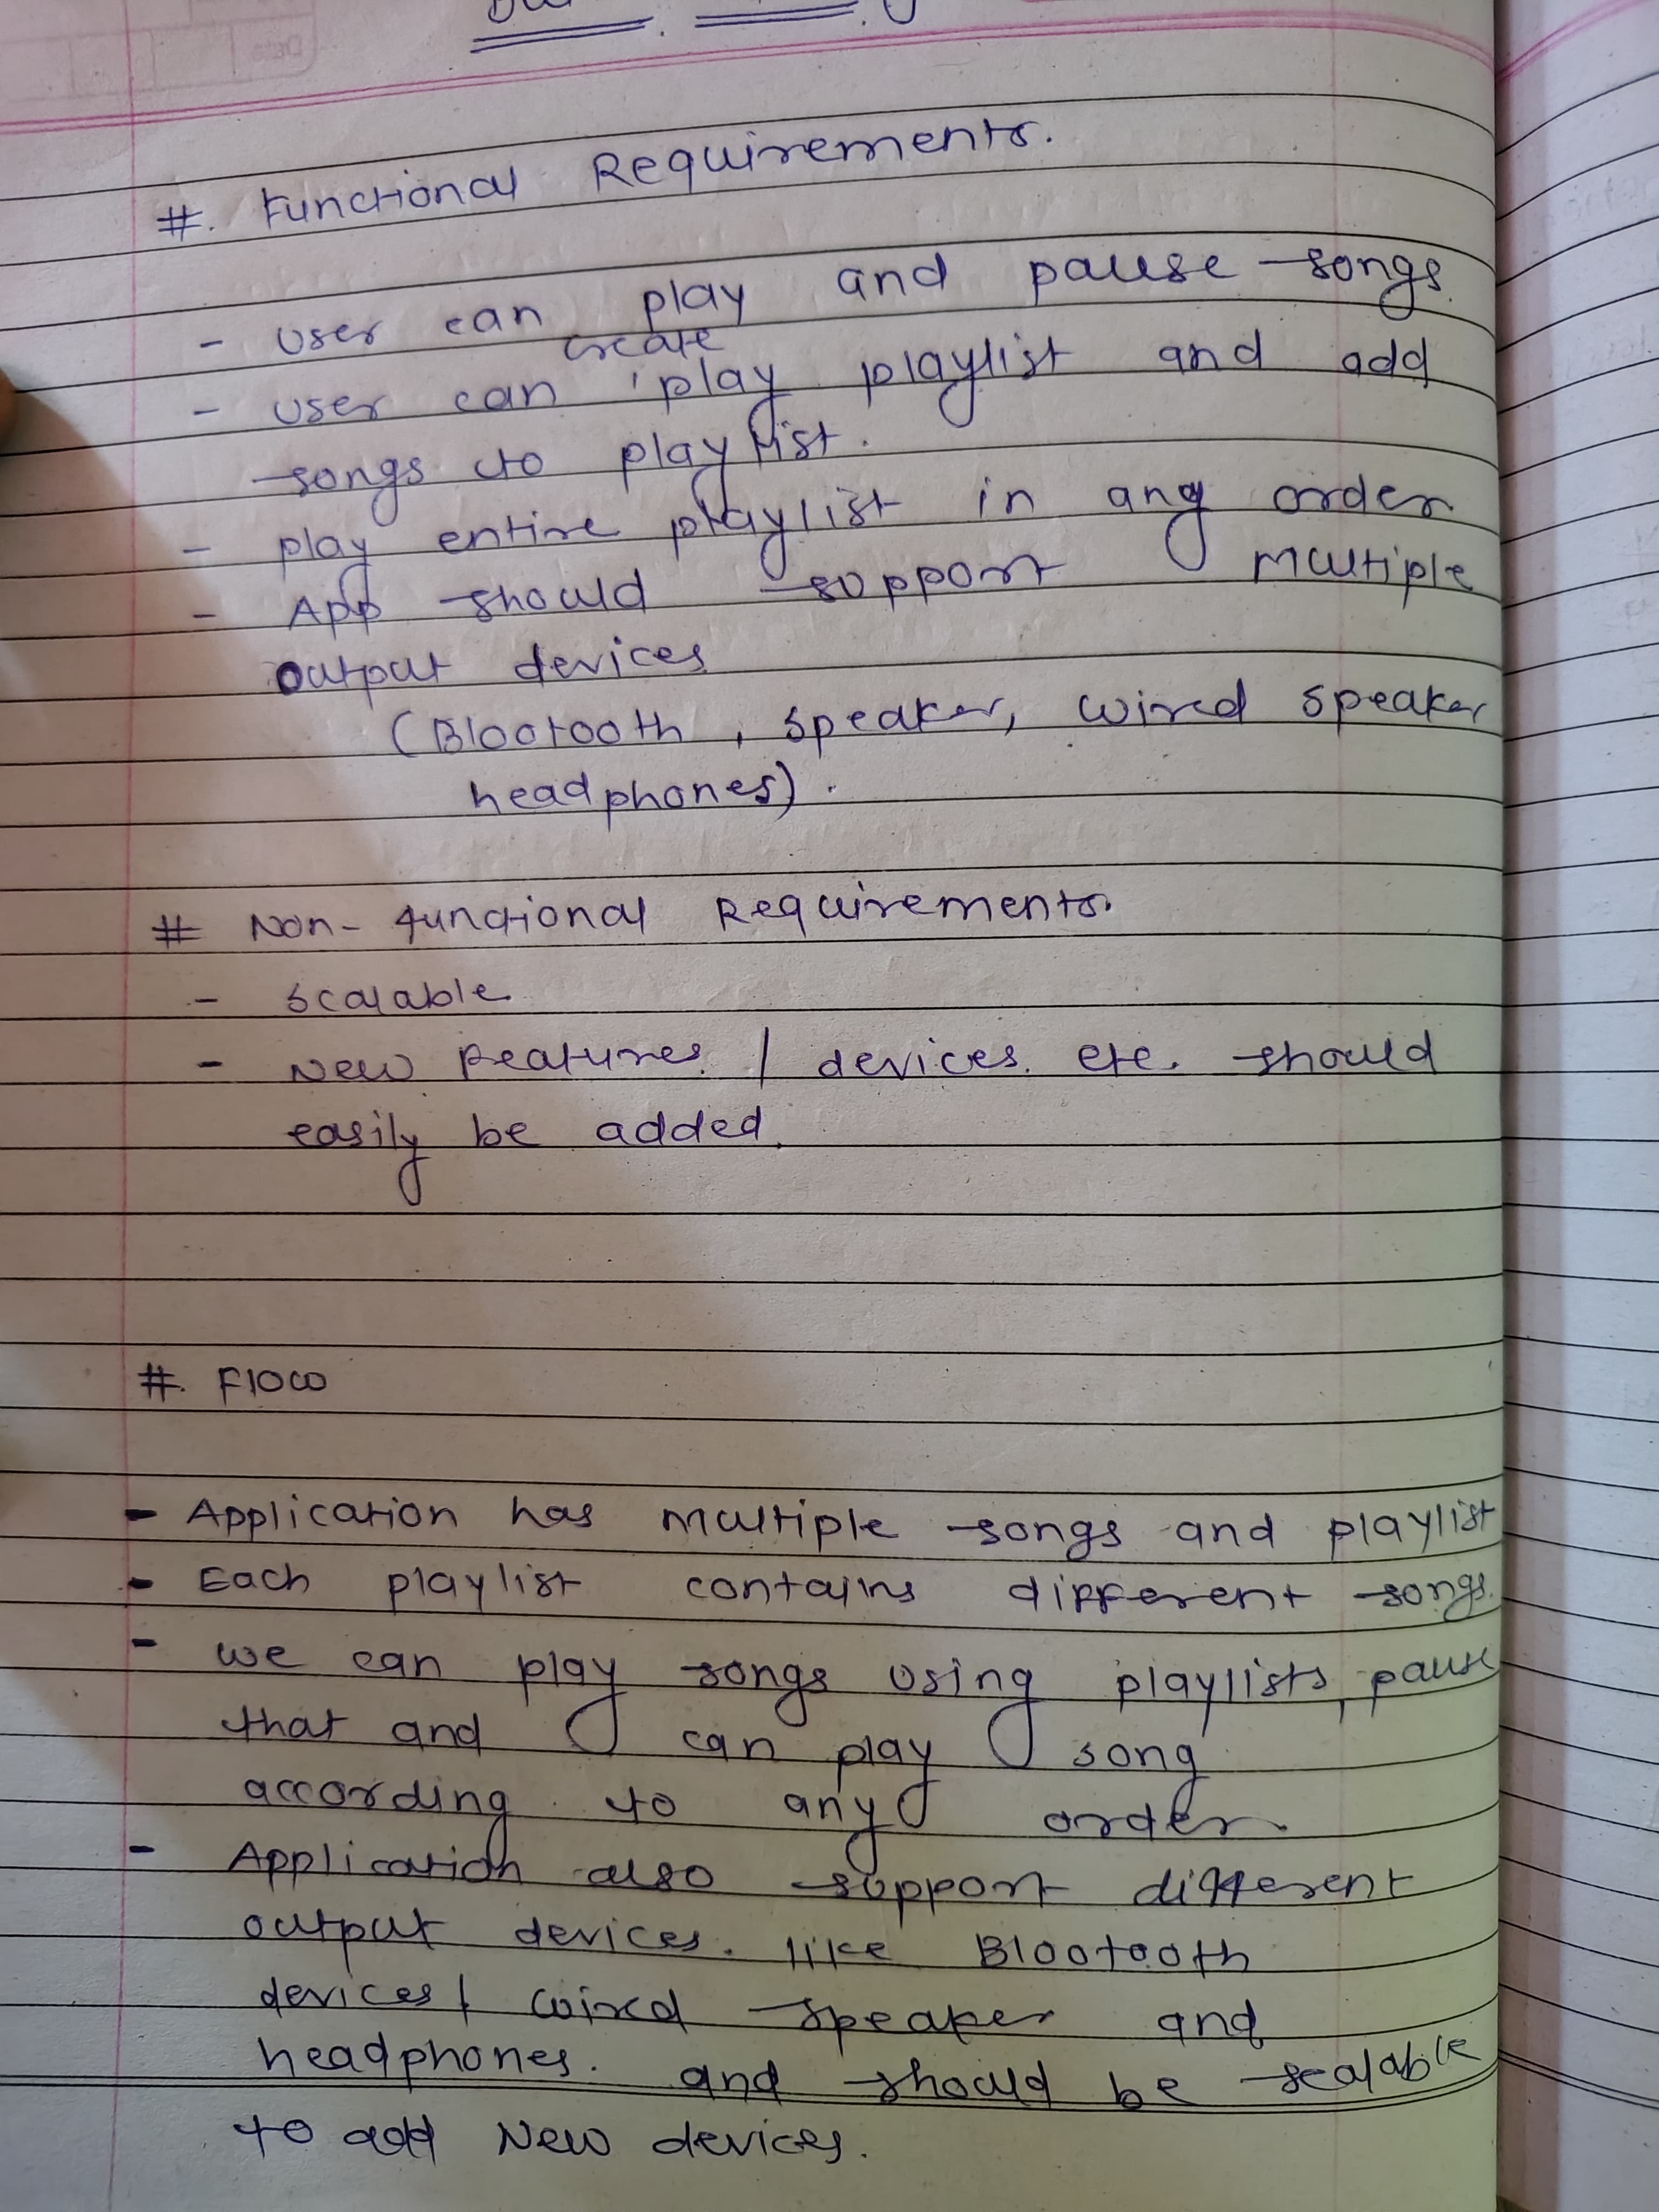 #. Functional Requirements.
- User can play and pause songs.
create
- User can play playlist and add
songs to playlist.
- play entire playlist in any order
- App should support Multiple
output devices
(Blootooth, speaker, wired speaker
headphones).
# Non-functional Requirements.
- scalable
- New features / devices etc. should
easily be added.
#. Flow
- Application has multiple songs and playlist
- Each playlist contains different songs.
- we can play songs using playlists, pause
that and can play song
according to any order.
- Application also support different
output devices. like Blootooth
devices / wired speaker and
headphones. and should be scalable
to add New devices.